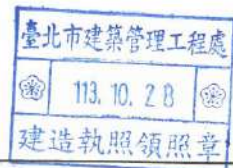 臺北市建築管理工程處
113.10.28
建造執照領照章